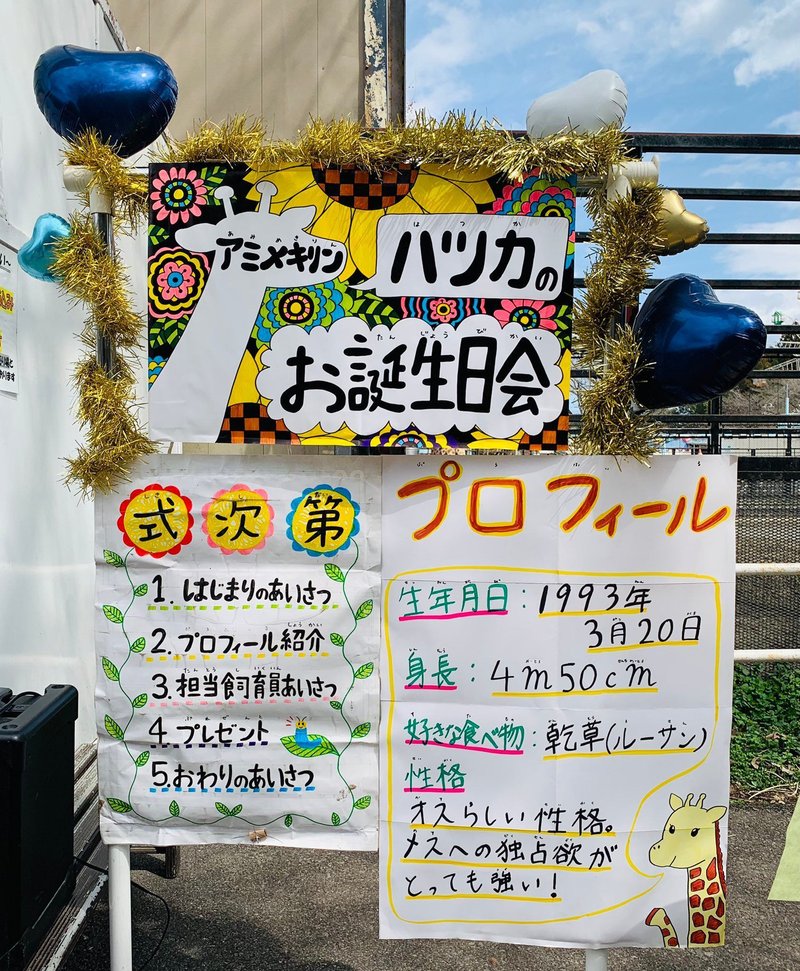 アミメキリン
ハツカの
お誕生日会
式次第
1. はじまりのあいさつ
2. プロフィール紹介
3. 担当飼育員あいさつ
4. プレゼント
5. おわりのあいさつ
プロフィール
生年月日：1993年
3月20日
身長：4m50cm
好きな食べ物：乾草(ルーサン)
性格
オスらしい性格。
メスへの独占欲が
とっても強い!